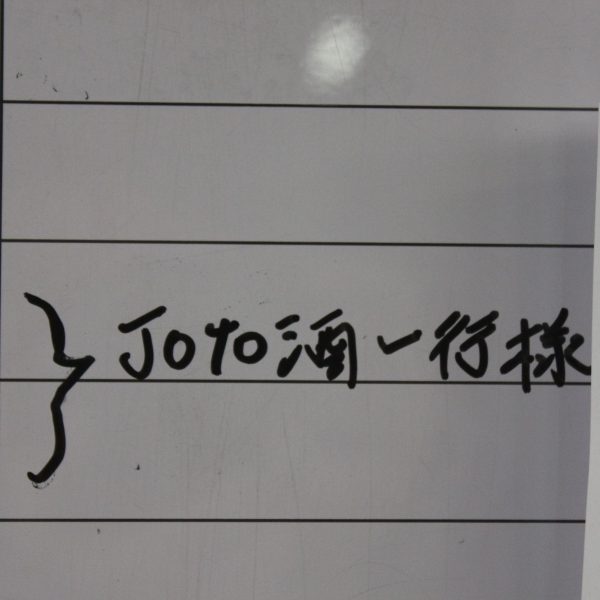 Joto酒一行様